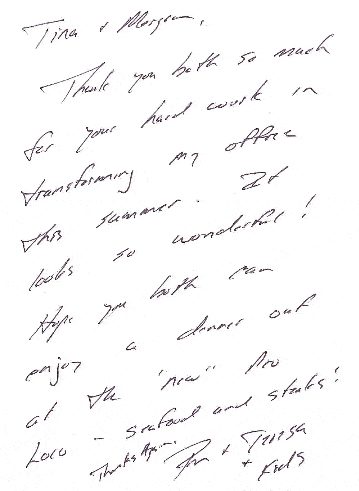 Tina + Morgan,
Thank you both so much
for your hard work in
transforming my office
this summer. It
looks so wonderful!
Hope you both can
enjoy a dinner out
at the "new"
Loco - seafood and steaks!
Thanks Again,
+ Teresa
+ Kids